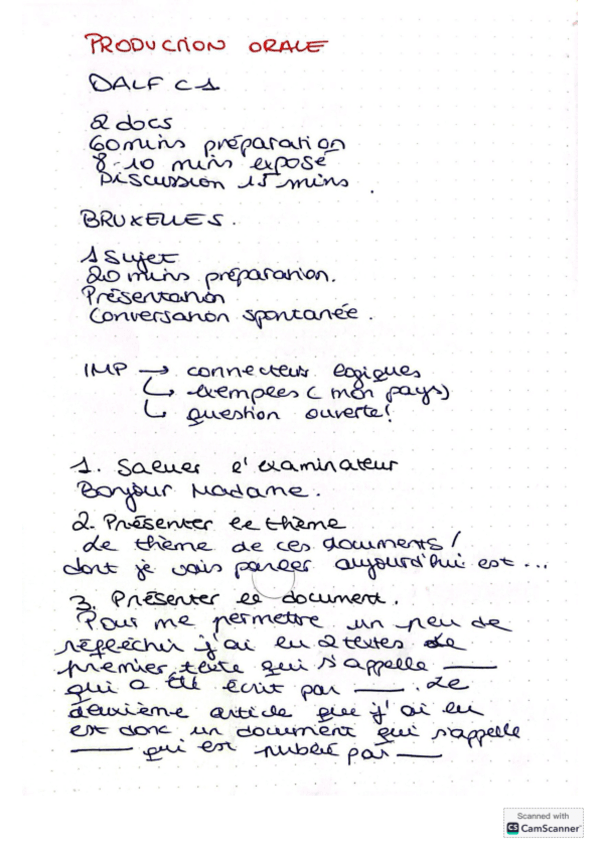 PRODUCTION ORALE
DALF C1
2 docs
60 mins préparation
8-10 mins exposé
Discussion 15 mins.
BRUXELLES.
1 Sujet
20 mins préparation.
Présentation
Conversation spontanée.
IMP → connecteurs logiques
↳ exemples (mon pays)
↳ question ouverte!
1. Saluer l'examinateur
Bonjour Madame.
2. Présenter le thème
Le thème de ces documents/
dont je vais parler aujourd'hui est ...
3. Présenter le document.
Pour me permettre un peu de
réfléchir j'ai lu 2 textes Le
premier texte qui s'appelle ____
qui a été écrit par ____. Le
deuxième article que j'ai lu
est donc un document qui s'appelle
____ qui est publié par ____
Scanned with
CS CamScanner